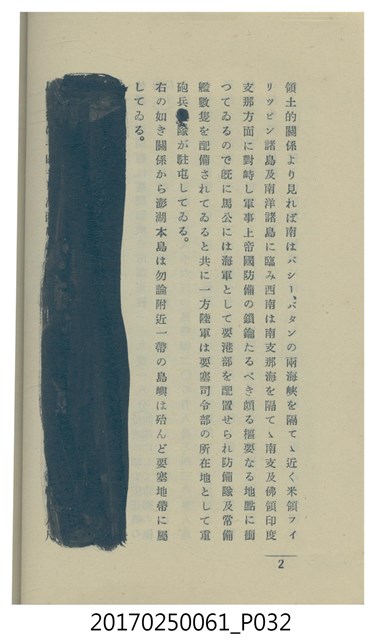 領土的關係より見れば南はバシー、バタンの兩海峽を隔てゝ近く米領フイ
リツピン諸島及南洋諸島に臨み西南は南支那海を隔てゝ南支及佛領印度
支那方面に對峙し軍事上帝國防備の鎖鑰たるべき頗る樞要なる地點に衝
つてゐるので既に馬公には海軍として要港部を配置せられ防備隊及常備
艦數隻を配備されてゐると共に一方陸軍は要塞司令部の所在地として重
砲兵隊が駐屯してゐる。
右の如き關係から澎湖本島は勿論附近一帶の島嶼は殆んど要塞地帶に屬
してゐる。
2
20170250061_P032